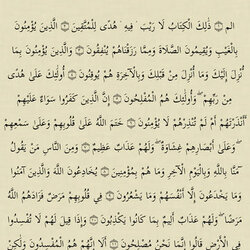 الم ۝ ذَٰلِكَ الْكِتَابُ لَا رَيْبَ ۛ فِيهِ ۛ هُدًى لِلْمُتَّقِينَ ۝ الَّذِينَ يُؤْمِنُونَ
بِالْغَيْبِ وَيُقِيمُونَ الصَّلَاةَ وَمِمَّا رَزَقْنَاهُمْ يُنْفِقُونَ ۝ وَالَّذِينَ يُؤْمِنُونَ بِمَا
أُنْزِلَ إِلَيْكَ وَمَا أُنْزِلَ مِنْ قَبْلِكَ وَبِالْآخِرَةِ هُمْ يُوقِنُونَ ۝ أُولَٰئِكَ عَلَىٰ هُدًى
مِنْ رَبِّهِمْ ۖ وَأُولَٰئِكَ هُمُ الْمُفْلِحُونَ ۝ إِنَّ الَّذِينَ كَفَرُوا سَوَاءٌ عَلَيْهِمْ
أَأَنْذَرْتَهُمْ أَمْ لَمْ تُنْذِرْهُمْ لَا يُؤْمِنُونَ ۝ خَتَمَ اللَّهُ عَلَىٰ قُلُوبِهِمْ وَعَلَىٰ سَمْعِهِمْ
وَعَلَىٰ أَبْصَارِهِمْ غِشَاوَةٌ ۖ وَلَهُمْ عَذَابٌ عَظِيمٌ ۝ وَمِنَ النَّاسِ مَنْ يَقُولُ
آمَنَّا بِاللَّهِ وَبِالْيَوْمِ الْآخِرِ وَمَا هُمْ بِمُؤْمِنِينَ ۝ يُخَادِعُونَ اللَّهَ وَالَّذِينَ آمَنُوا
وَمَا يَخْدَعُونَ إِلَّا أَنْفُسَهُمْ وَمَا يَشْعُرُونَ ۝ فِي قُلُوبِهِمْ مَرَضٌ فَزَادَهُمُ اللَّهُ
مَرَضًا ۖ وَلَهُمْ عَذَابٌ أَلِيمٌ بِمَا كَانُوا يَكْذِبُونَ ۝ وَإِذَا قِيلَ لَهُمْ لَا تُفْسِدُوا
فِي الْأَرْضِ قَالُوا إِنَّمَا نَحْنُ مُصْلِحُونَ ۝ أَلَا إِنَّهُمْ هُمُ الْمُفْسِدُونَ وَلَٰكِنْ